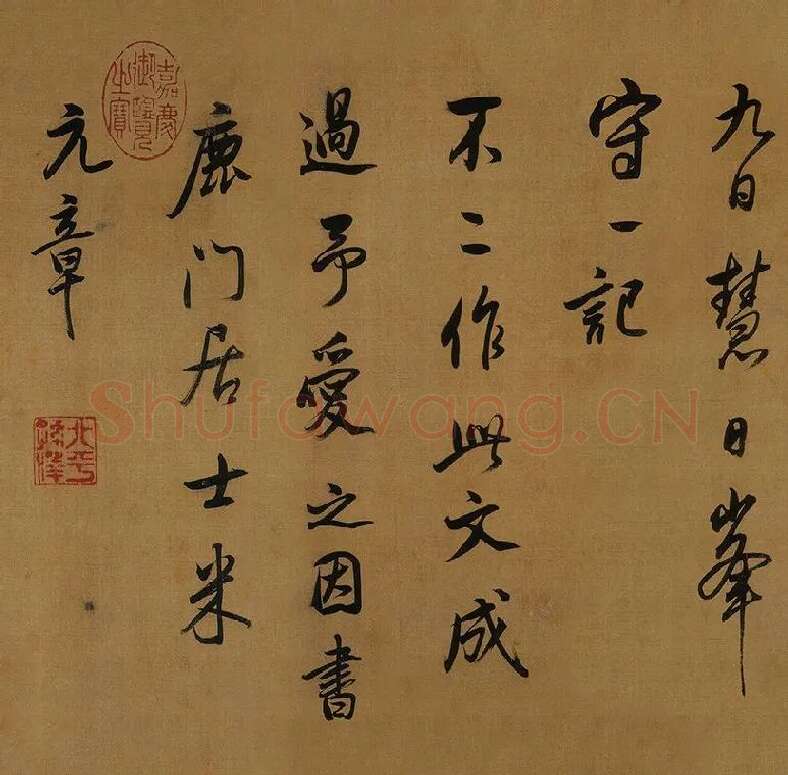 九日慧日峯
守一記
不二作此文成
過予愛之因書
鹿門居士米
元章
嘉慶御覽之寶
Shufawang.CN